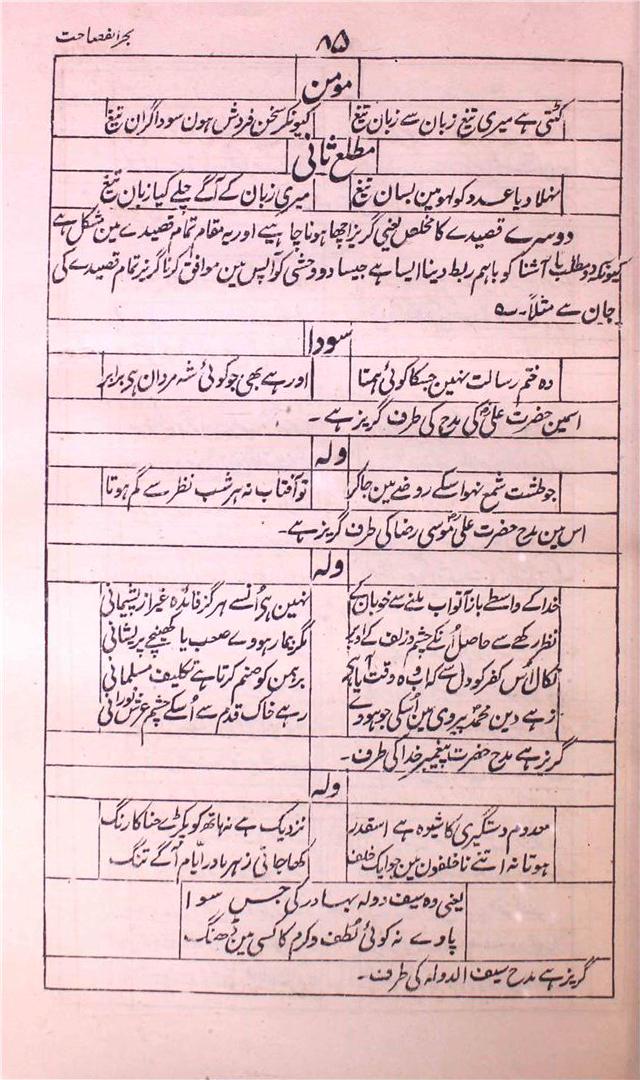 بحر الفصاحت
۸۵
مومن
اٹکتی ہے میری تیغ زبان سے زبان تیغ کیونکر سخن فروش ہون سوداگران تیغ
مطلع ثانی
نہلا دیا عدد کو لہو مین بسان تیغ میری زبان کے آگے چلے کیا زبان تیغ
دوسرے قصیدے کا مخلص یعنی گریز اچھا ہونا چاہیے اور یہ مقام تمام قصیدے مین مشکل ہے
کیونکہ دو مطلب نا آشنا کو باہم ربط دینا ایسا ہے جیسا دو وحشی کو آپس مین موافق کرنا گریز تمام قصیدے کی
جان ہے مثلاً۔ ؎
سودا
وہ ختم رسالت نہین جسکا کوئی ہمتا اور ہے بھی جو کوئی شہ مردان ہی برابر
اسمین حضرت علیؓ کی مدح کی طرف گریز ہے۔
ولہ
جو طشت شمع نہوا سکے روضے مین جا کر تو آفتاب نہ ہر شب نظر سے گم ہوتا
اس مین مدح حضرت علی موسی رضا کی طرف گریز ہے۔
ولہ
خدا کے واسطے باز آ تو اب ملنے سے خوبان کے نہین ہی اُنسے ہرگز فائدہ غیر از پشیمانی
نظر رکھے سے حاصل اُنکے چشم و زلف کے اوپر مگر بیمار ہووے صعب یا کھینچے پریشانی
نکال اس کفر کو دل سے کہ اب وہ وقت آیا ہے برہمن کو صنم کرتا ہے تکلیف مسلمانی
زہے دین محمدؐ پیروی مین اُسکی جو ہووے رہے خاک قدم سے اُسکے چشم عرش نورانی
گریز ہے مدح حضرت پیغمبر خدا کی طرف۔
ولہ
معدوم دستگیری کا شیوہ ہے اسقدر نزدیک ہے نہ ہاتھ کو پکڑے حنا کا رنگ
ہوتا نہ اتنے نا خلفون مین جو ایک خلف کھا جاتی زہر مادر ایّام آگے تنگ
یعنی وہ سیف دولہ بہادر کی جس سوا
پاوے نہ کوئی لُطف و کرم کا کسی مین ڈھنگ
گریز ہے مدح سیف الدولہ کی طرف۔